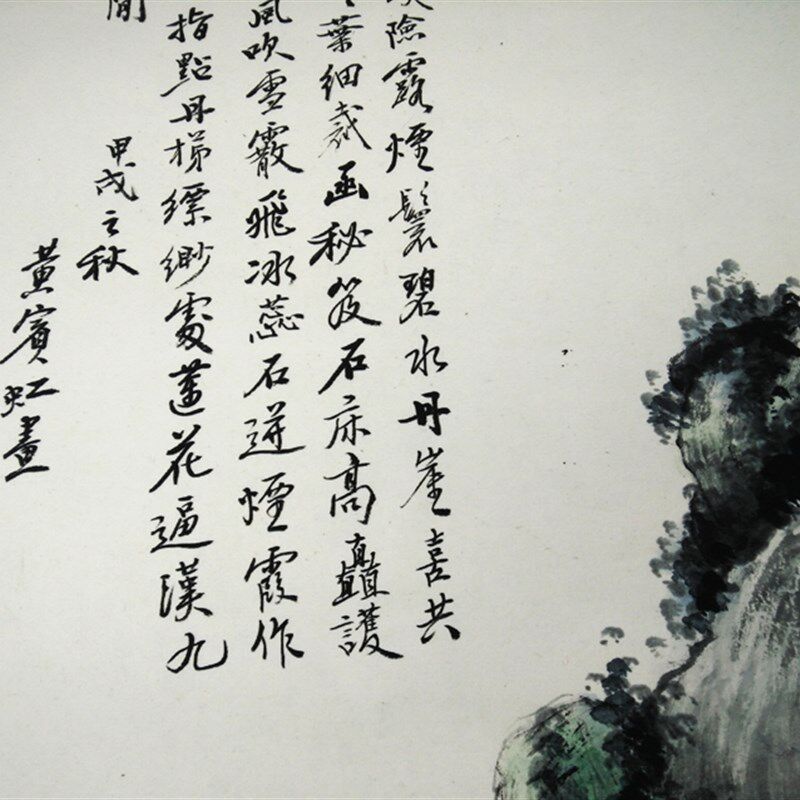 險露煙鬟碧水丹崖喜共
葉細裁函秘笈石床高矗護
風吹雪霰飛冰蕊石迸煙霞作
指點丹梯縹緲處蓮花逼漢九
間 甲戌之秋
黃賓虹畫